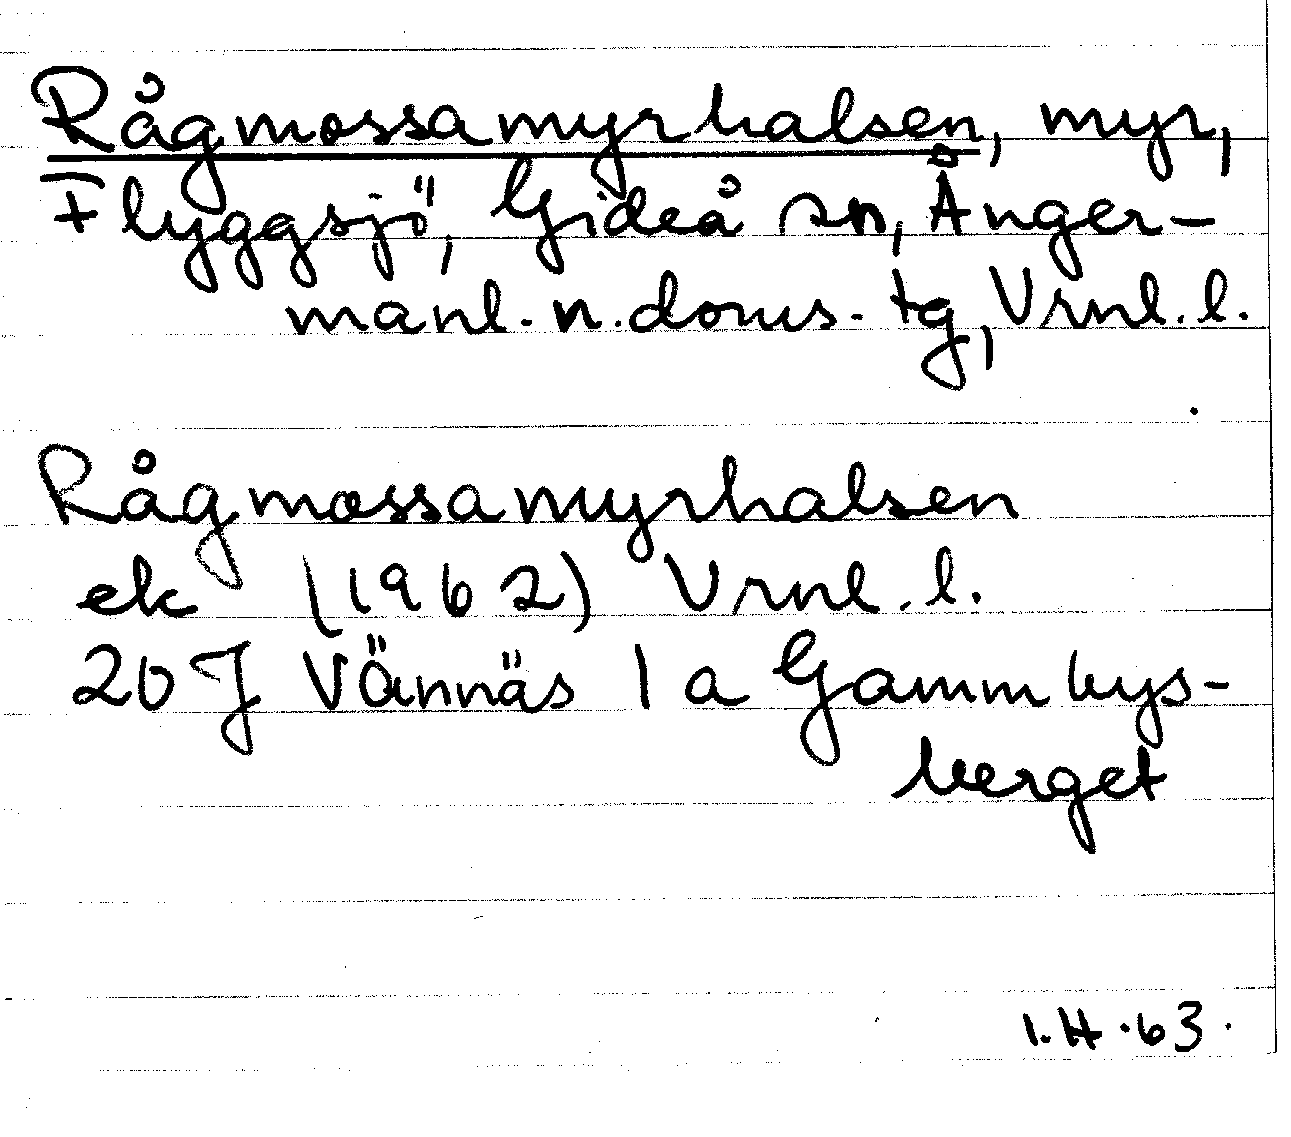 Rågmossamyrhalsen, myr,
Flyggsjö, Gideå sn, Ånger-
manl. n. doms. tg, Vrnl. l.
Rågmossamyrhalsen
ek (1962) Vrnl. l.
20 J Vännäs 1 a Gammbys-
berget
I.H.63.